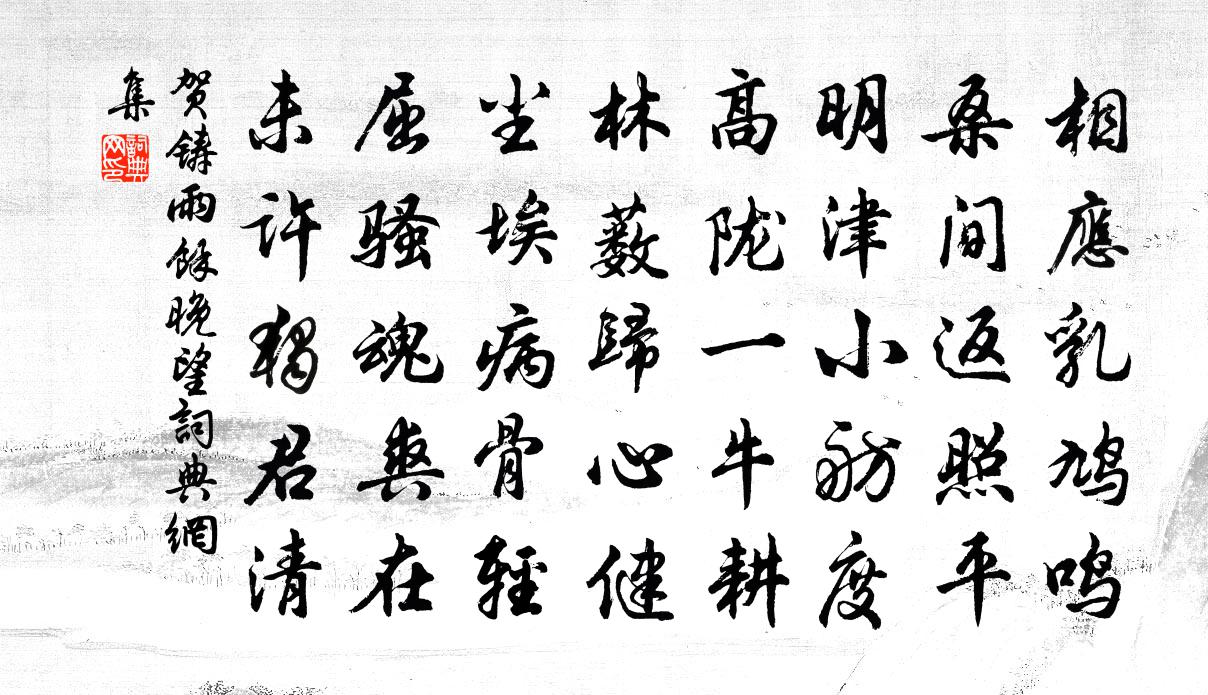 相應乳鳩鳴
桑間返照平
明津小舫度
高陇一牛耕
林薮歸心健
尘埃病骨輕
屈騷魂爽在
未許獨君清
贺鑄雨餘晚望詞典網
集
詞典
网印